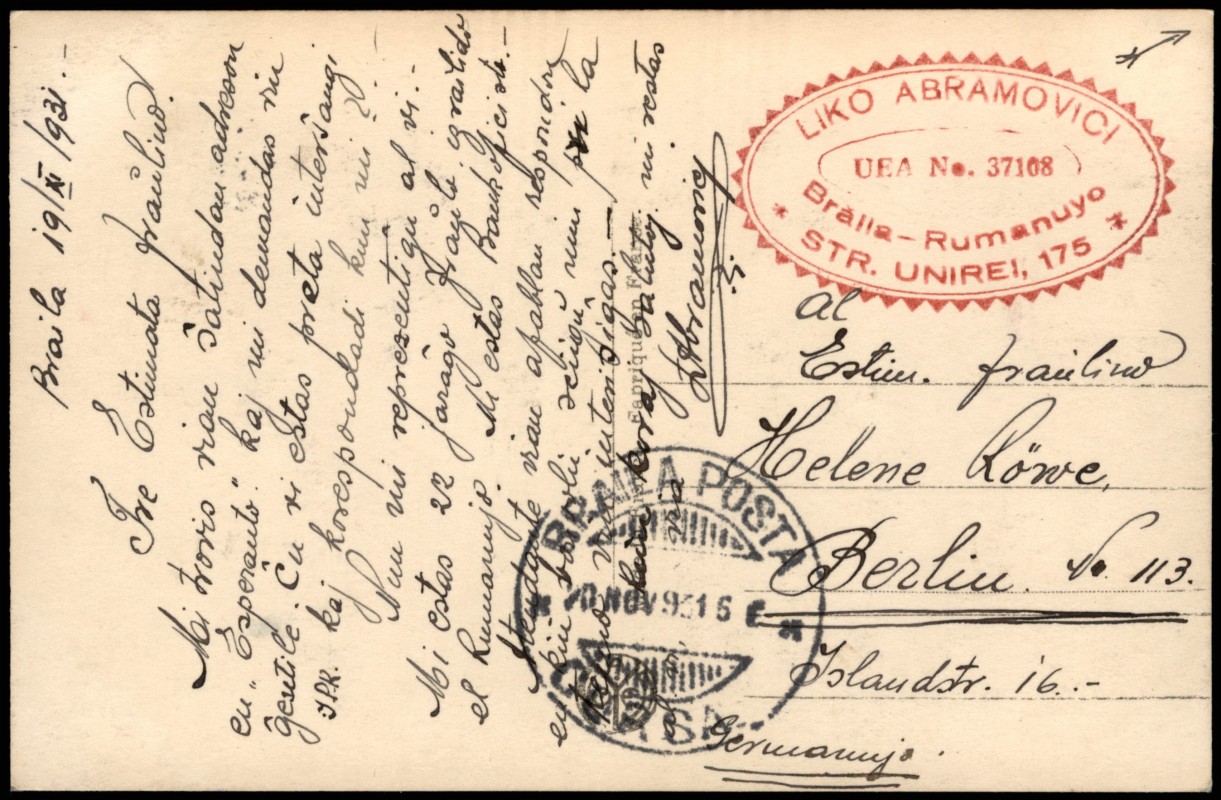 Braila 19/XI/931.-
Tre Estimata fraŭlino.
Mi trovis vian ŝatindan adreson
en „Esperanto" kaj mi demandas vin
ĝentile: Ĉu vi estas preta interŝanĝi
I.P.K. kaj korespondadi kun mi?
Nun mi reprezentiĝu al vi.-
Mi estas 22 jaraĝo fraŭlo grailido
el Rumanujo. Mi estas Bankoficisto.-
Atendante vian afablan respondon
en kiu
la
mi restas
Abramovici
Fabriqué en France.
LIKO ABRAMOVICI
UEA No. 37108
Brăila-Rumanuyo
* STR. UNIREI, 175 *
al
Estim. fraŭlino
Helene Röwe,
Berlin. No. 113.
Islandstr. 16.-
Germanujo.
BRAILA POSTA
20 NOV 931 6 E